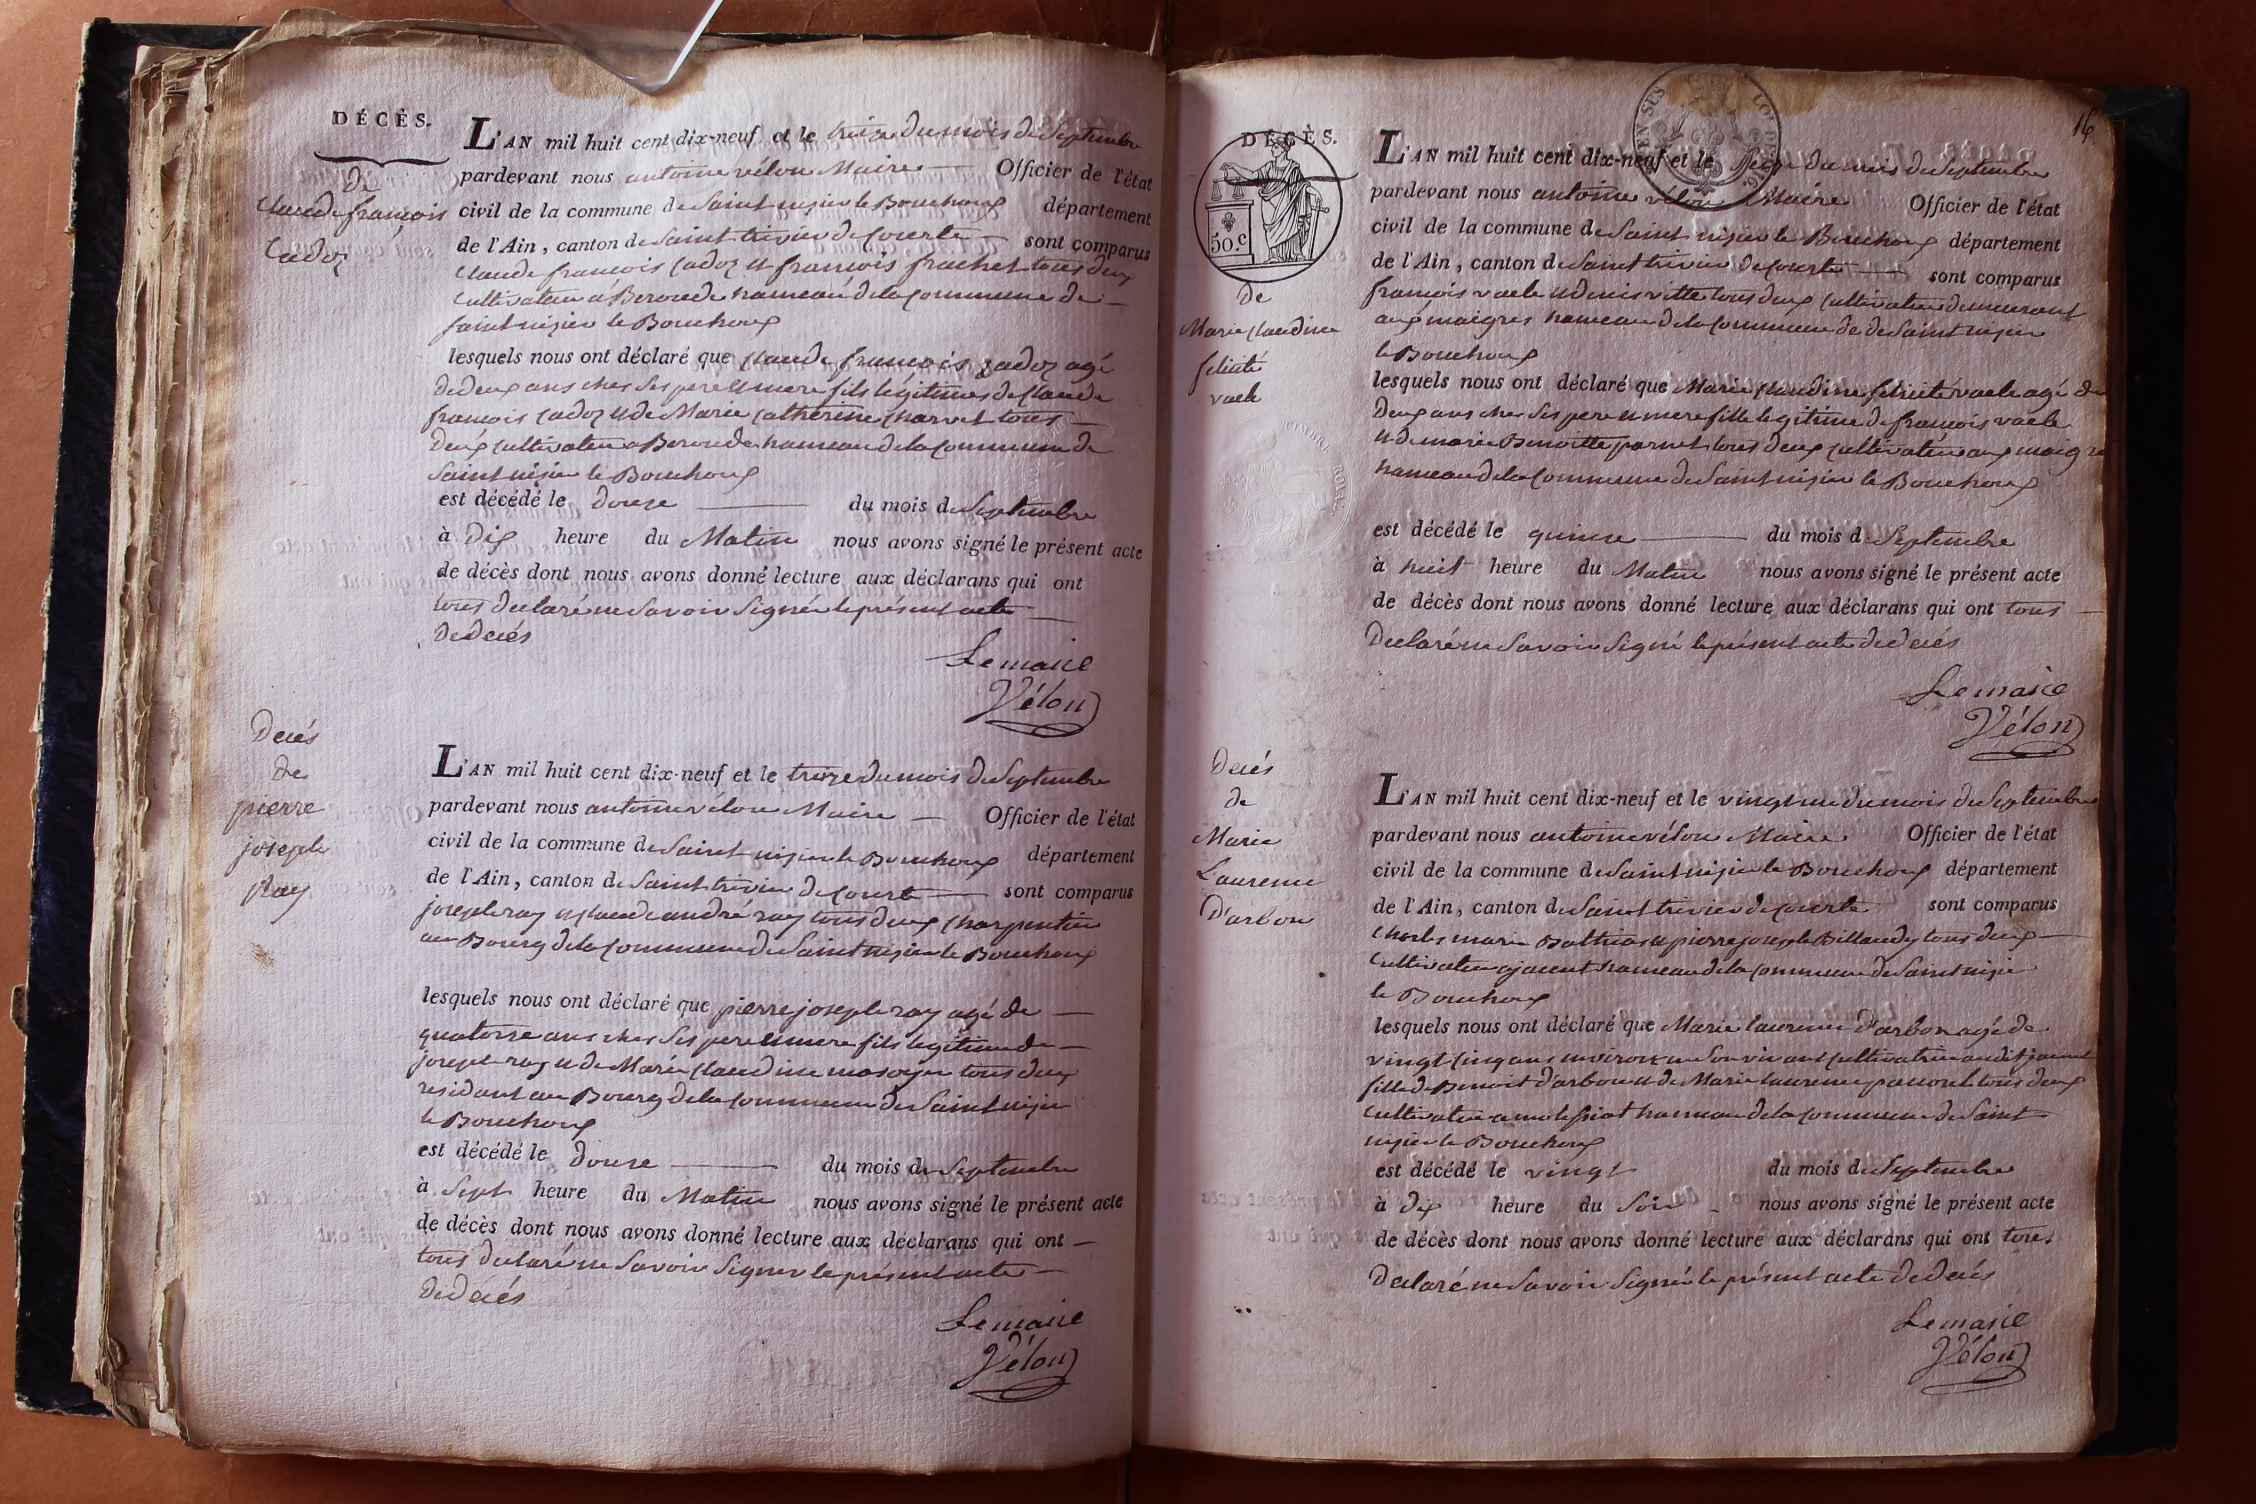 DÉCÈS.
de
Claude françois
Cadoz
L'AN mil huit cent dix-neuf et le treize du mois de Septembre
pardevant nous antoine vélon Maire Officier de l'état
civil de la commune de Saint nizier le Bouchoux département
de l'Ain, canton de Saint trivier de Courte sont comparus
Claude françois Cadoz et françois frachet tous deux
Cultivateur á Beroude hameau de la Commune de
saint nizier le Bouchoux
lesquels nous ont déclaré que Claude françois Cadoz agé
de deux ans chez ses pere et mere fils légitimes de Claude
françois Cadoz et de Marie Catherine Charvet tous
Deux Cultivateur a Beroude hameau de la Commune de
Saint nizier le Bouchoux
est décédé le douze du mois de Septembre
à Dix heure du Matin nous avons signé le présent acte
de décès dont nous avons donné lecture aux déclarans qui ont
tous declaré ne Savoir Signé le présent acte
De décés
Le maire
Vélon
Decés
de
pierre
joseph
Ray
L'AN mil huit cent dix-neuf et le treize du mois de Septembre
pardevant nous antoine vélon Maire Officier de l'état
civil de la commune de Saint nizier le Bouchoux département
de l'Ain, canton de Saint trivier de Courte sont comparus
joseph ray et Claude andré ray tous deux Charpentier
au Bourg de la Commune de Saint nizier le Bouchoux
lesquels nous ont déclaré que pierre joseph ray agé de
quatorze ans chez ses pere et mere fils légitime de
joseph ray et de Marie Claudine masoyer tous deux
residant au Bourg de la Commune de Saint nizier
le Bouchoux
est décédé le douze du mois de Septembre
à Sept heure du Matin nous avons signé le présent acte
de décès dont nous avons donné lecture aux déclarans qui ont
tous declaré ne Savoir Signer le présent acte
De décés
Le maire
Vélon
16
DÉCÈS.
50.c
TIMBRE ROYAL
de
Marie Claudine
felicité
vaele
L'AN mil huit cent dix-neuf et le Seize du mois de Septembre
pardevant nous antoine vélon Maire Officier de l'état
civil de la commune de Saint nizier le Bouchoux département
de l'Ain, canton de Saint trivier de Courte sont comparus
françois vaele et denis vitte tous deux Cultivateur demeurant
aux maigres hameau de la Commune de de Saint nizier
le Bouchoux
lesquels nous ont déclaré que Marie Claudine felicité vaele agé de
Deux ans chez ses pere et mere fille legitime de françois vaele
et de marie Benoitte parvet tous deux Cultivateur aux maigres
hameau de la Commune de Saint nizier le Bouchoux
est décédé le quinze du mois de Septembre
à huit heure du Matin nous avons signé le présent acte
de décès dont nous avons donné lecture aux déclarans qui ont tous
Declaré ne Savoir Signé le présent acte de decés
Le maire
Vélon
Decés
de
Marie
Laurence
D'arbon
L'AN mil huit cent dix-neuf et le vingt un du mois de Septembre
pardevant nous antoine vélon Maire Officier de l'état
civil de la commune de Saint nizier le Bouchoux département
de l'Ain, canton de Saint trivier de Courte sont comparus
Charles marie Bathias et pierre joseph Billaudy tous deux
Cultivateur a jacent hameau de la Commune de Saint nizier
le Bouchoux
lesquels nous ont déclaré que Marie laurence d'arbon agé de
vingt Cinq ans environ en Son vivant Cultivatrice audit jacent
fille de Benoit d'arbon et de Marie laurence tous deux
Cultivateur a hameau de la Commune de Saint
nizier le Bouchoux
est décédé le vingt du mois de Septembre
à dix heure du Soir nous avons signé le présent acte
de décès dont nous avons donné lecture aux déclarans qui ont tous
Declaré ne Savoir Signé le présent acte de decés
Le maire
Vélon